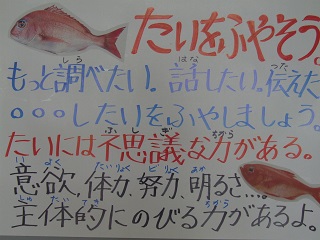 たいをふやそう。
もっと調べたい。話したい。伝えた
○○○したいをふやしましょう。
たいには不思議な力がある。
意欲、体力、努力、明るさ…。
主体的にのびる力があるよ。